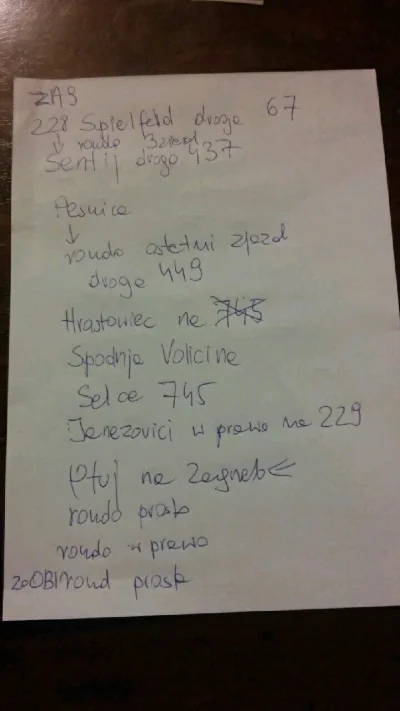 z A9
228 Spielfeld droga 67
↓ rondo 3 zjazd
Sentij droga 437
Pesnica
↓
rondo ostatni zjazd
droga 449
Hrastowiec na 745
Spodnja Volicina
Selce 745
Janezovici w prawo na 229
Ptuj na Zagreb <
rondo prosto
rondo w prawo
za OBI rond prosto